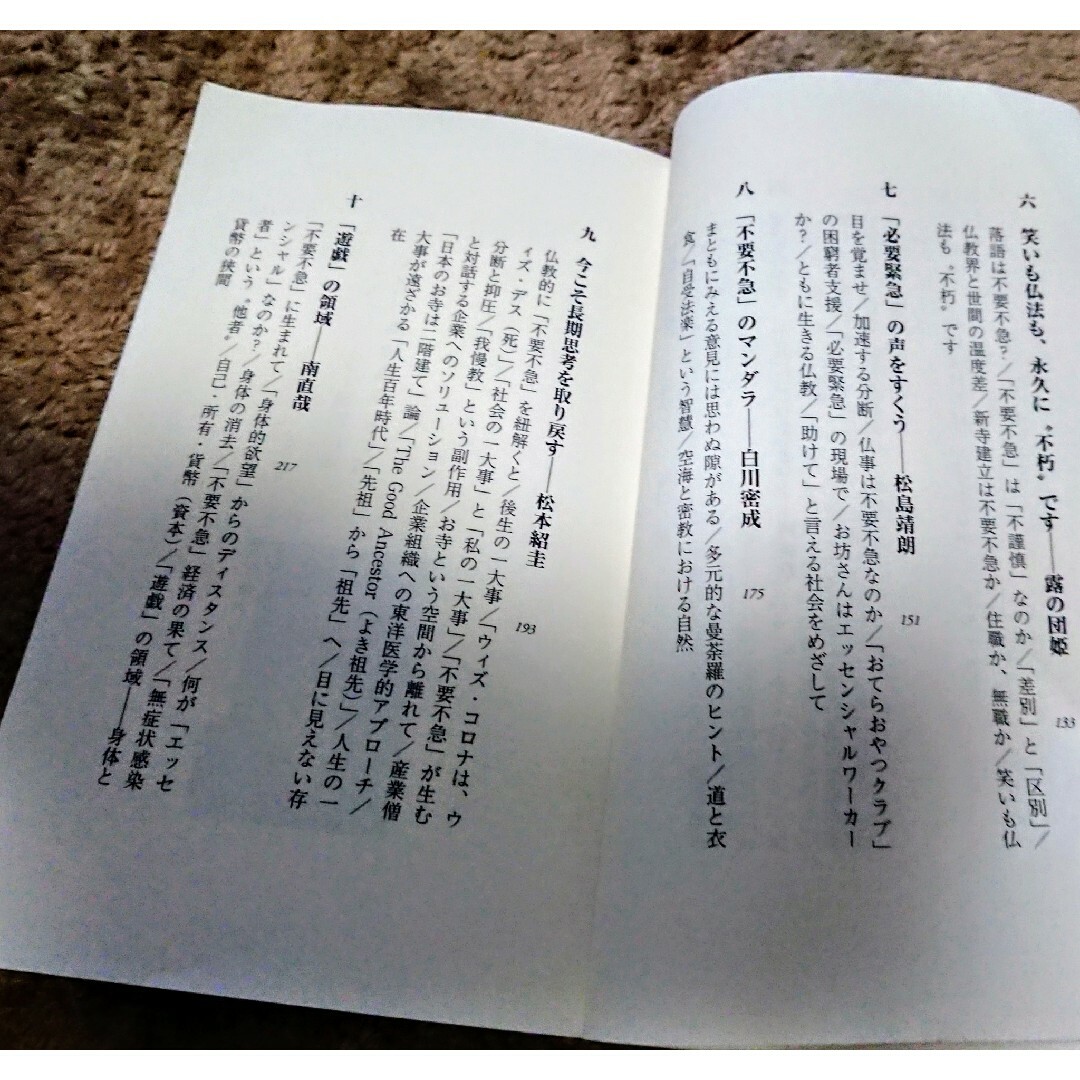 六 笑いも仏法も、永久に〝不朽〟です――露の団姫 133
落語は不要不急?/「不要不急」は「不謹慎」なのか/「差別」と「区別」/
仏教界と世間の温度差/新寺建立は不要不急か/住職か、無職か/笑いも仏
法も〝不朽〟です
七 「必要緊急」の声をすくう――松島靖朗 151
目を覚ませ/加速する分断/仏事は不要不急なのか/「おてらおやつクラブ」
の困窮者支援/「必要緊急」の現場で/お坊さんはエッセンシャルワーカー
か?/ともに生きる仏教/「助けて」と言える社会をめざして
八 「不要不急」のマンダラ――白川密成 175
まともにみえる意見には思わぬ隙がある/多元的な曼荼羅のヒント/道と衣
食/「自受法楽」という智慧/空海と密教における自然
九 今こそ長期思考を取り戻す――松本紹圭 193
仏教的に「不要不急」を紐解くと/後生の一大事/「ウィズ・コロナは、ウ
ィズ・デス(死)」/「社会の一大事」と「私の一大事」/「不要不急」が生む
分断と抑圧/「我慢教」という副作用/お寺という空間から離れて/産業僧
と対話する企業へのソリューション/企業組織への東洋医学的アプローチ/
「日本のお寺は二階建て」論/「The Good Ancestor(よき祖先)」/人生の一
大事が遠ざかる「人生百年時代」/「先祖」から「祖先」へ/目に見えない存
在
十 「遊戯」の領域――南直哉 217
「不要不急」に生まれて/「身体的欲望」からのディスタンス/何が「エッセ
ンシャル」なのか?/身体の消去/「不要不急」経済の果て/「無症状感染
者」という〝他者〟/自己・所有・貨幣(資本)/「遊戯」の領域――身体と
貨幣の狭間